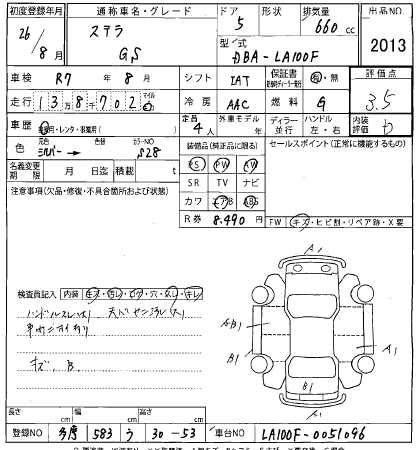 初度登録年月 通称車名・グレード ドア 形状 排気量 出品No.
26/8月 ステラ GS 5 660cc 2013
型式 DBA-LA100F
車検 R7年8月 シフト IAT 保証書 有・無 評価点 3.5
走行 13万8千702 マイル 冷房 AAC 燃料 G
車歴 自家用・レンタ・事業用( ) 定員 4人 外車モデル 年 ディーラー 並行 ハンドル 左・右 内装評価 D
色 シルバー → 色替 カラーNo S28 装備品(純正品に限る) セールスポイント(正常に機能するもの)
名義変更期限 月 日迄 積載 t PS PW AW
注意事項(欠品・修復・不具合箇所および状態) SR TV ナビ
カワ エアB ABS
R券 8,490円 FW キズ・ヒビ割・リペア跡・X要
A1
検査員記入 内装 キズ・汚レ・コゲ・穴・スレ・キレ
ハンドルスレ(大)
車内
キズ、B.
AB1
B1
A1
B1
A1
長さ cm 幅 cm 高さ cm
登録NO 多摩 583 う 30-53 車台NO LA100F-0051096